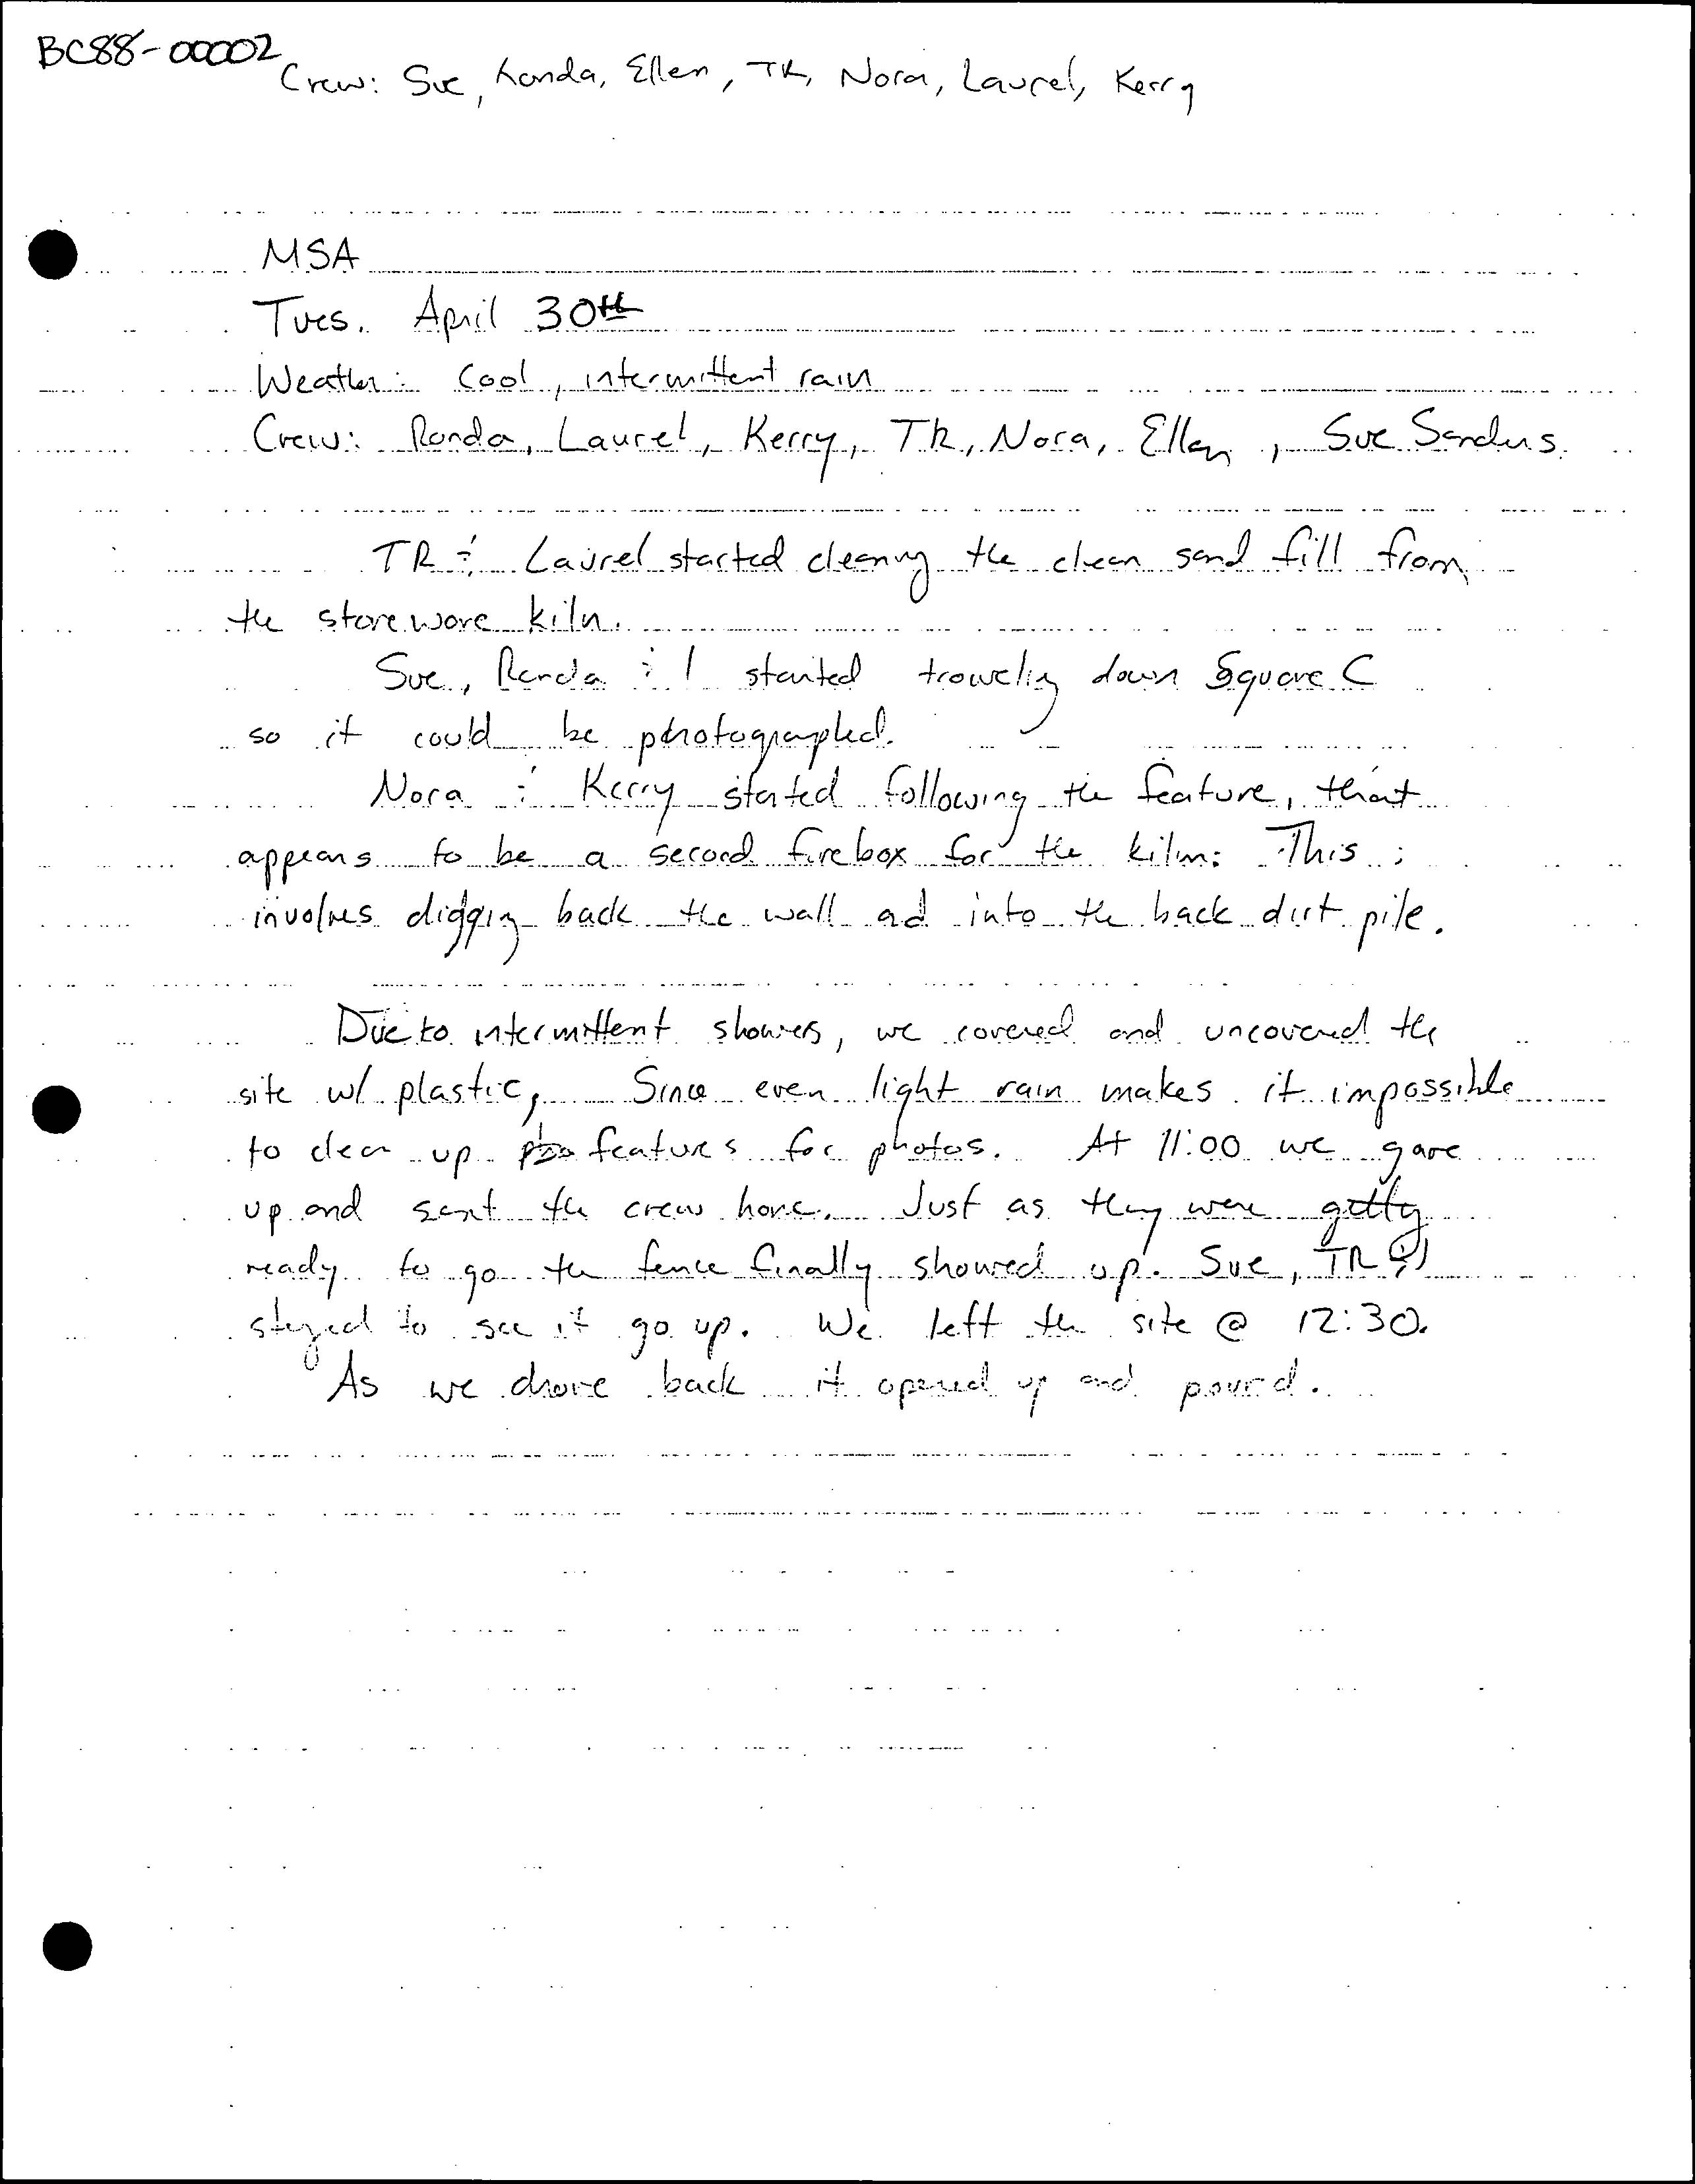 BC88-00002
Crew: Sue, Ronda, Ellen, TR, Nora, Laurel, Kerry
MSA
Tues. April 30th
Weather: Cool, intermittent rain
Crew: Ronda, Laurel, Kerry, TR, Nora, Ellen, Sue Sanders.
TR & Laurel started cleaning the clean sand fill from
the stoneware kiln.
Sue, Ronda & I started troweling down Square C
so it could be photographed.
Nora & Kerry started following the feature, that
appears to be a second firebox for the kiln. This
involves digging back the wall and into the back dirt pile.
Due to intermittent showers, we covered and uncovered the
site w/ plastic, Since even light rain makes it impossible
to clean up features for photos. At 11:00 we gave
up and sent the crew home. Just as they were getting
ready to go the fence finally showed up. Sue, TR & I
stayed to see it go up. We left the site @ 12:30.
As we drove back it opened up and poured.